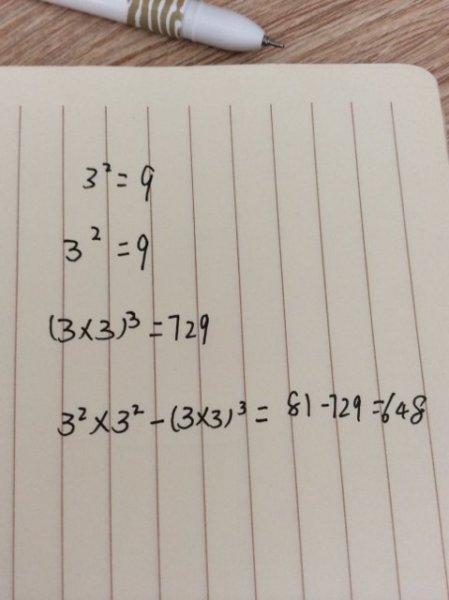 3² = 9
3² = 9
(3×3)³ = 729
3²×3² - (3×3)³ = 81 - 729 = 648